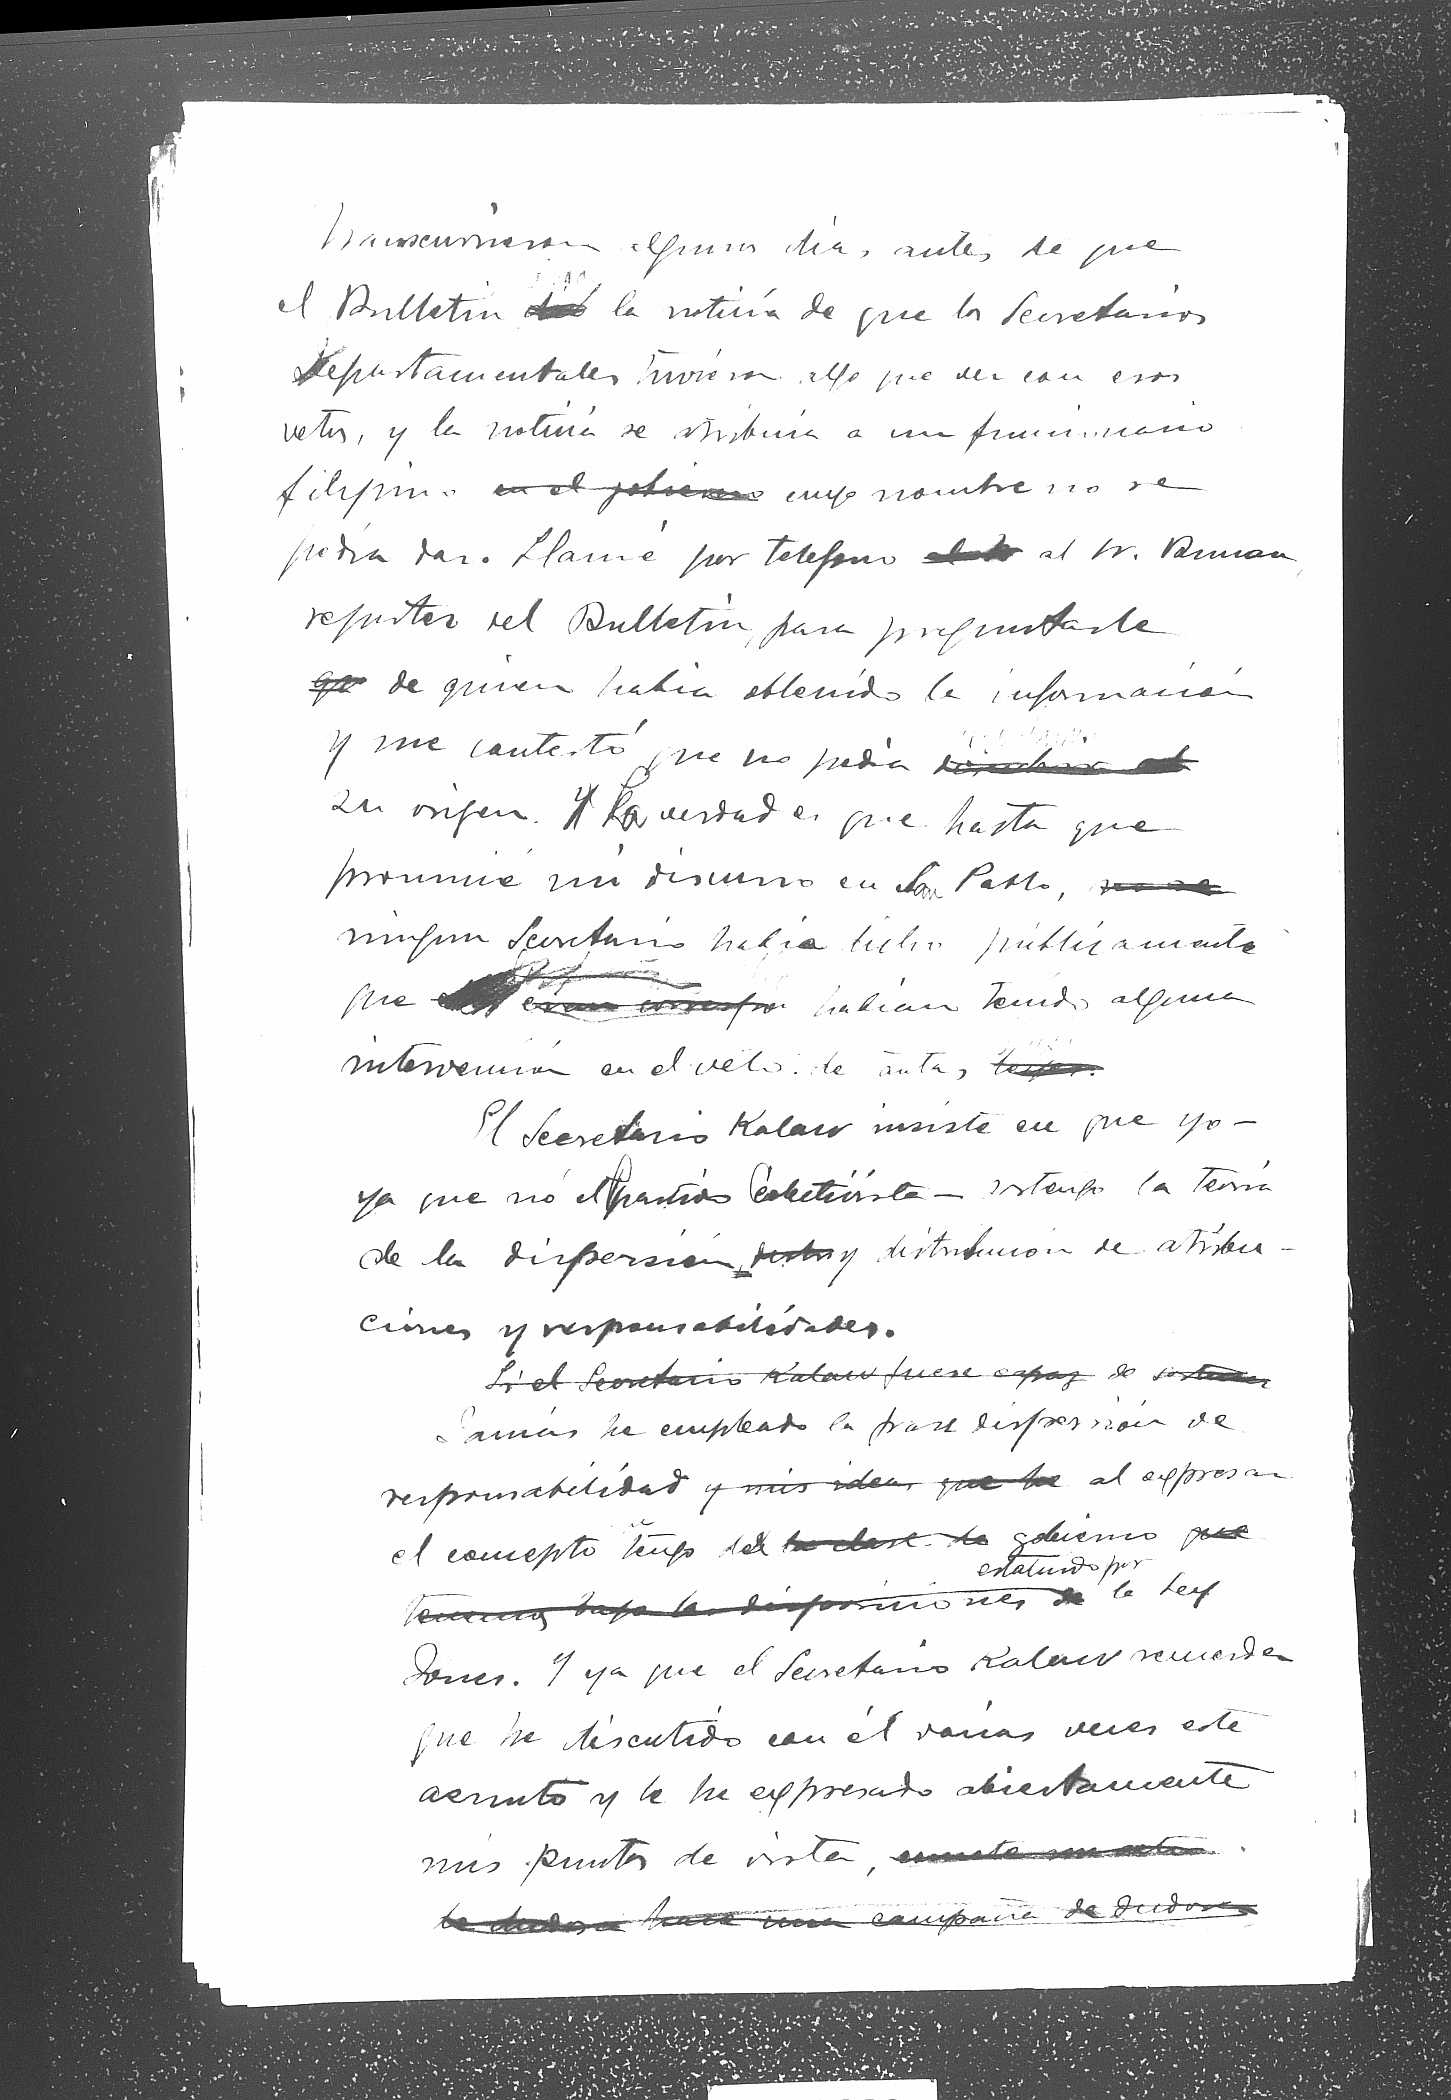 Transcurrieron algunos dias antes de que
el Bulletin la noticia de que los Secretarios
Departamentales tuvieran algo que ver con esos
vetos, y la noticia se atribuia a un funcionario
filipino en el gobierno cuyo nombre no se
podia dar. Llamé por telefono al Sr. 
reporter del Bulletin, para preguntarle
que de quien habia obtenido la información
y me contestó que no podia
su origen. Y la verdad es que hasta que
pronuncié mi discurso en San Pablo, no se
ningun Secretario habia dicho públicamente
que eran habian tenido alguna
intervención en el veto de estas leyes.
El Secretario Kalaw insiste en que yo —
ya que nó el partido Colectivista — sostengo la teoria
de la dispersión y distribucion de atribu-
ciones y responsabilidades.
Si el Secretario Kalaw fuese capaz de sostener
Jamás he empleado la frase dispersión de
responsabilidad y mis ideas que he al expresar
el concepto tengo del la clase de gobierno que
estatuido por
tenemos bajo las disposiciones de la Ley
Jones. Y ya que el Secretario Kalaw recuerda
que he discutido con él varias veces este
asunto y le he expresado abiertamente
mis puntos de vista,
hace una campaña de dudosa